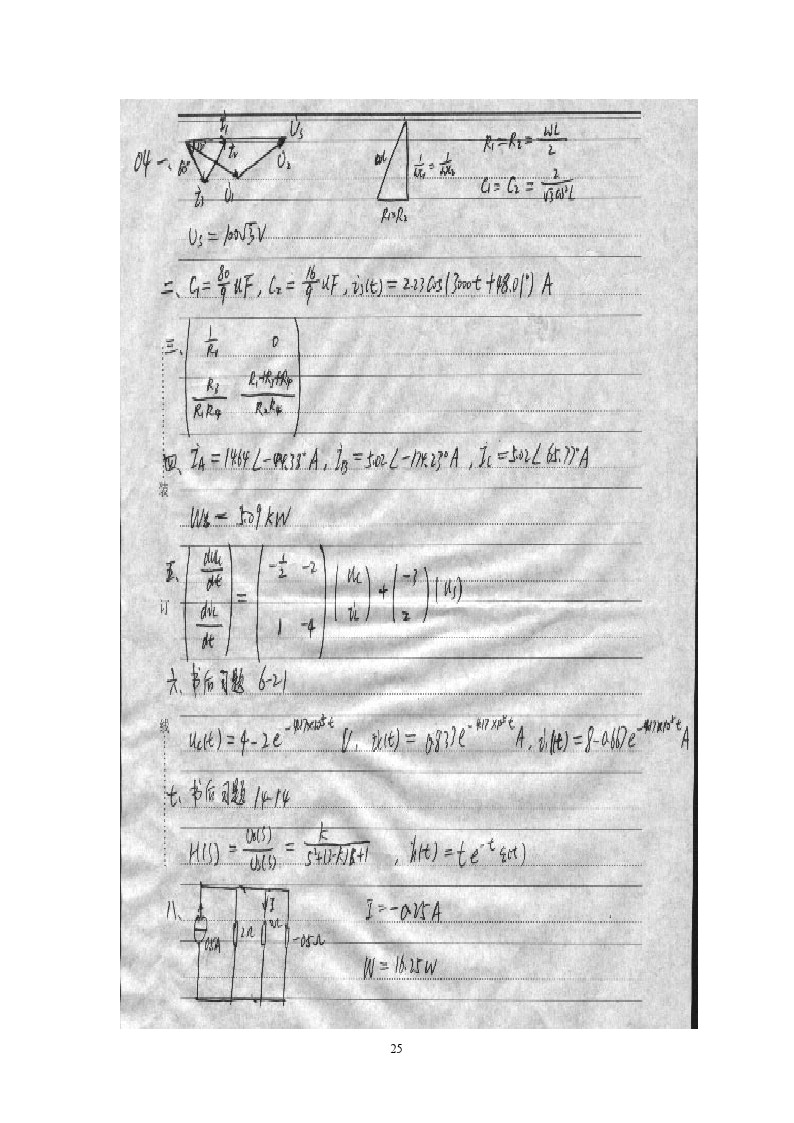 04 一、
İ₁ U̇s İ₂ U̇₂ 60° İ₃ U̇₁
ωL 1/ωC₁ = 1/ωC₂ R₁=R₂
R₁=R₂= ωL/2
C₁=C₂= 2/(√3ω²L)
Us=100√3V
二、C₁= 80/9 uF, C₂= 16/9 uF, i₃(t)=2.23cos(3000t+48.01°) A
三、
1/R₁ 0
R₃/(R₁R₄) (R₁+R₃+R₄)/(R₂R₄)
四、İA=14.64∠-44.38°A, İB=5.02∠-174.23°A, İc=5.02∠65.77°A
装
W₂=5.09kW
五、
(duc/dt diL/dt) = (-1/2 -2 1 -4)(uc iL)+(-3 2)(us)
订
六、书后习题 6-21
线
uc(t)=4-2e^{-4.17×10⁵t} V, ic(t)=0.833e^{-4.17×10⁵t} A, i₁(t)=8-0.667e^{-4.17×10⁵t} A
七、书后习题 14-14
H(s)= U₀(s)/Us(s) = k/(s²+(3-k)s+1), h(t)=te^{-t}ε(t)
八、
0.5A 2Ω I 2Ω -0.5Ω
I=-0.25A
W=16.25W
25